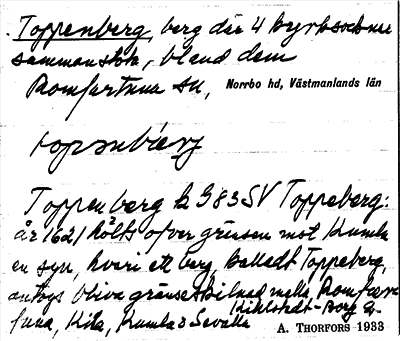 Toppenberg, berg där 4 kyrksocknar
sammanstöta, bland dem
Romfartuna sn, Norrbo hd, Västmanlands län
Toppenberg k 983 SV Toppeberg:
år 1621 hölts ofver gränsen mot Kumla
en syn, hvari ett berg, kalladt Toppeberg,
angys bliva gränseskilnad mella Romfar-
tuna, Kila, Kumla o Sevalla
A. THORFORS 1933